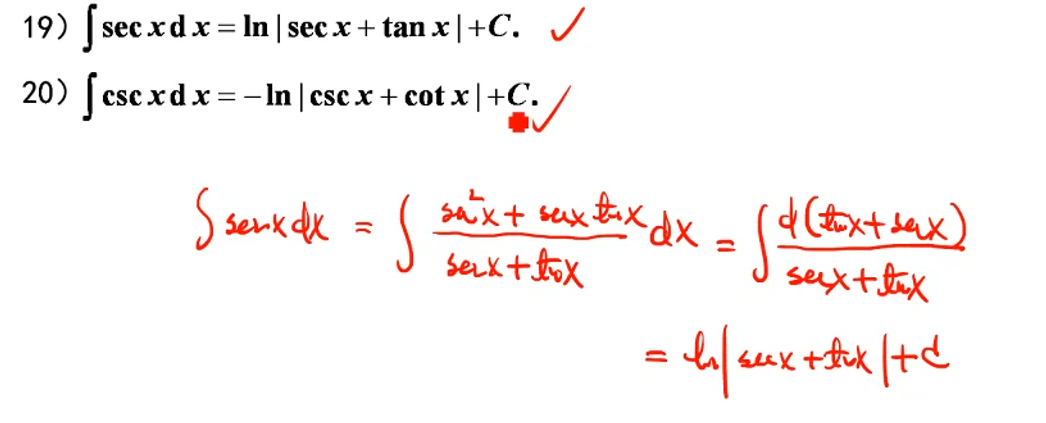 19) ∫ sec x d x = ln | sec x + tan x | + C.
20) ∫ csc x d x = − ln | csc x + cot x | + C.
∫ secx dx = ∫ (sec²x + secx tanx)/(secx + tanx) dx = ∫ d(tanx + secx)/(secx + tanx)
= ln|secx + tanx| + C